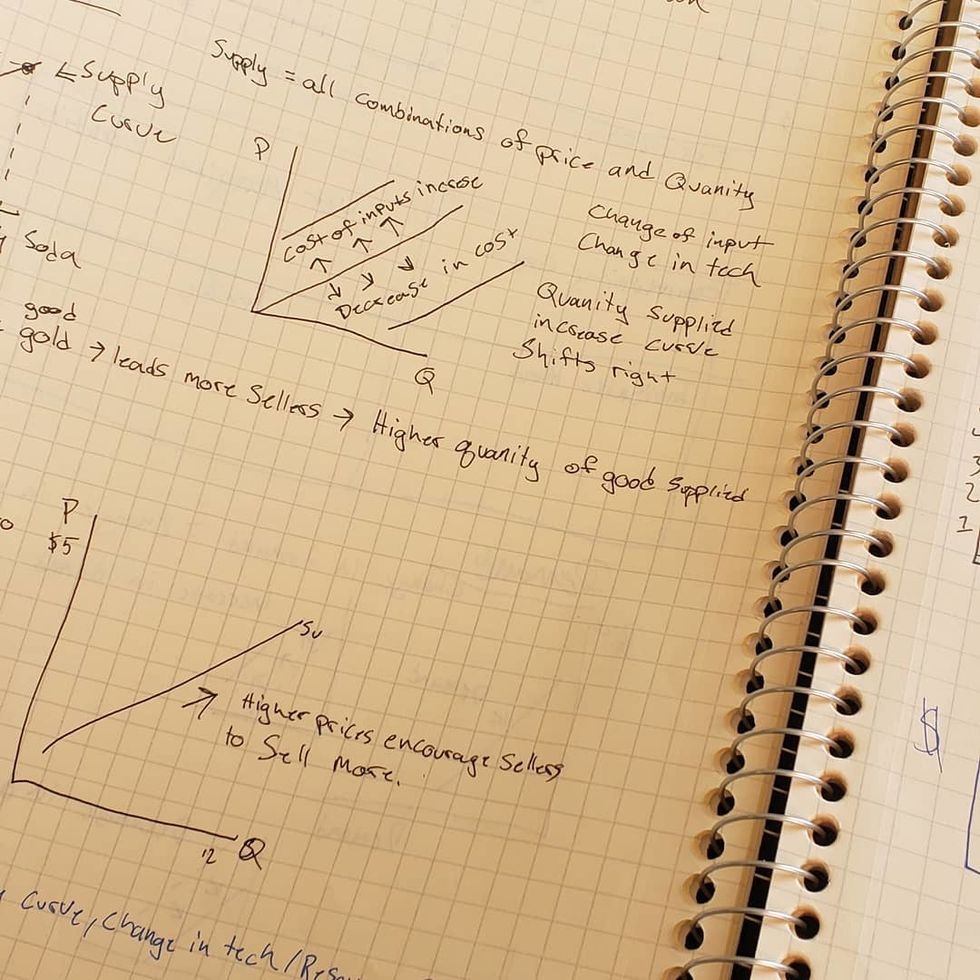 Supply = all combinations of price and Quanity
Supply
Curve
P
Cost of inputs increse
Decrease in cost
Q
Change of input
Change in tech
Quanity Supplied
increase curve
Shifts right
Soda
good
gold → leads more Sellers → Higher quanity of good Supplied
P
$5
Su
Higher prices encourage Sellers
to Sell more.
12 Q
Curve, Change in tech /
3
2
1
$